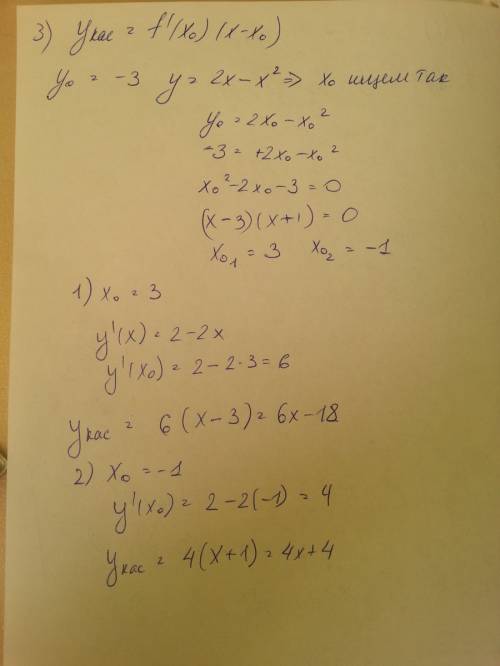 3) yкас = f'(x₀) (x-x₀)
y₀ = -3 y = 2x - x² ⇒ x₀ ищем так
y₀ = 2x₀ - x₀²
-3 = +2x₀ - x₀²
x₀² - 2x₀ - 3 = 0
(x-3)(x+1) = 0
x₀₁ = 3 x₀₂ = -1
1) x₀ = 3
y'(x) = 2 - 2x
y'(x₀) = 2 - 2·3 = 6
yкас = 6(x-3) = 6x - 18
2) x₀ = -1
y'(x₀) = 2 - 2(-1) = 4
yкас = 4(x+1) = 4x+4